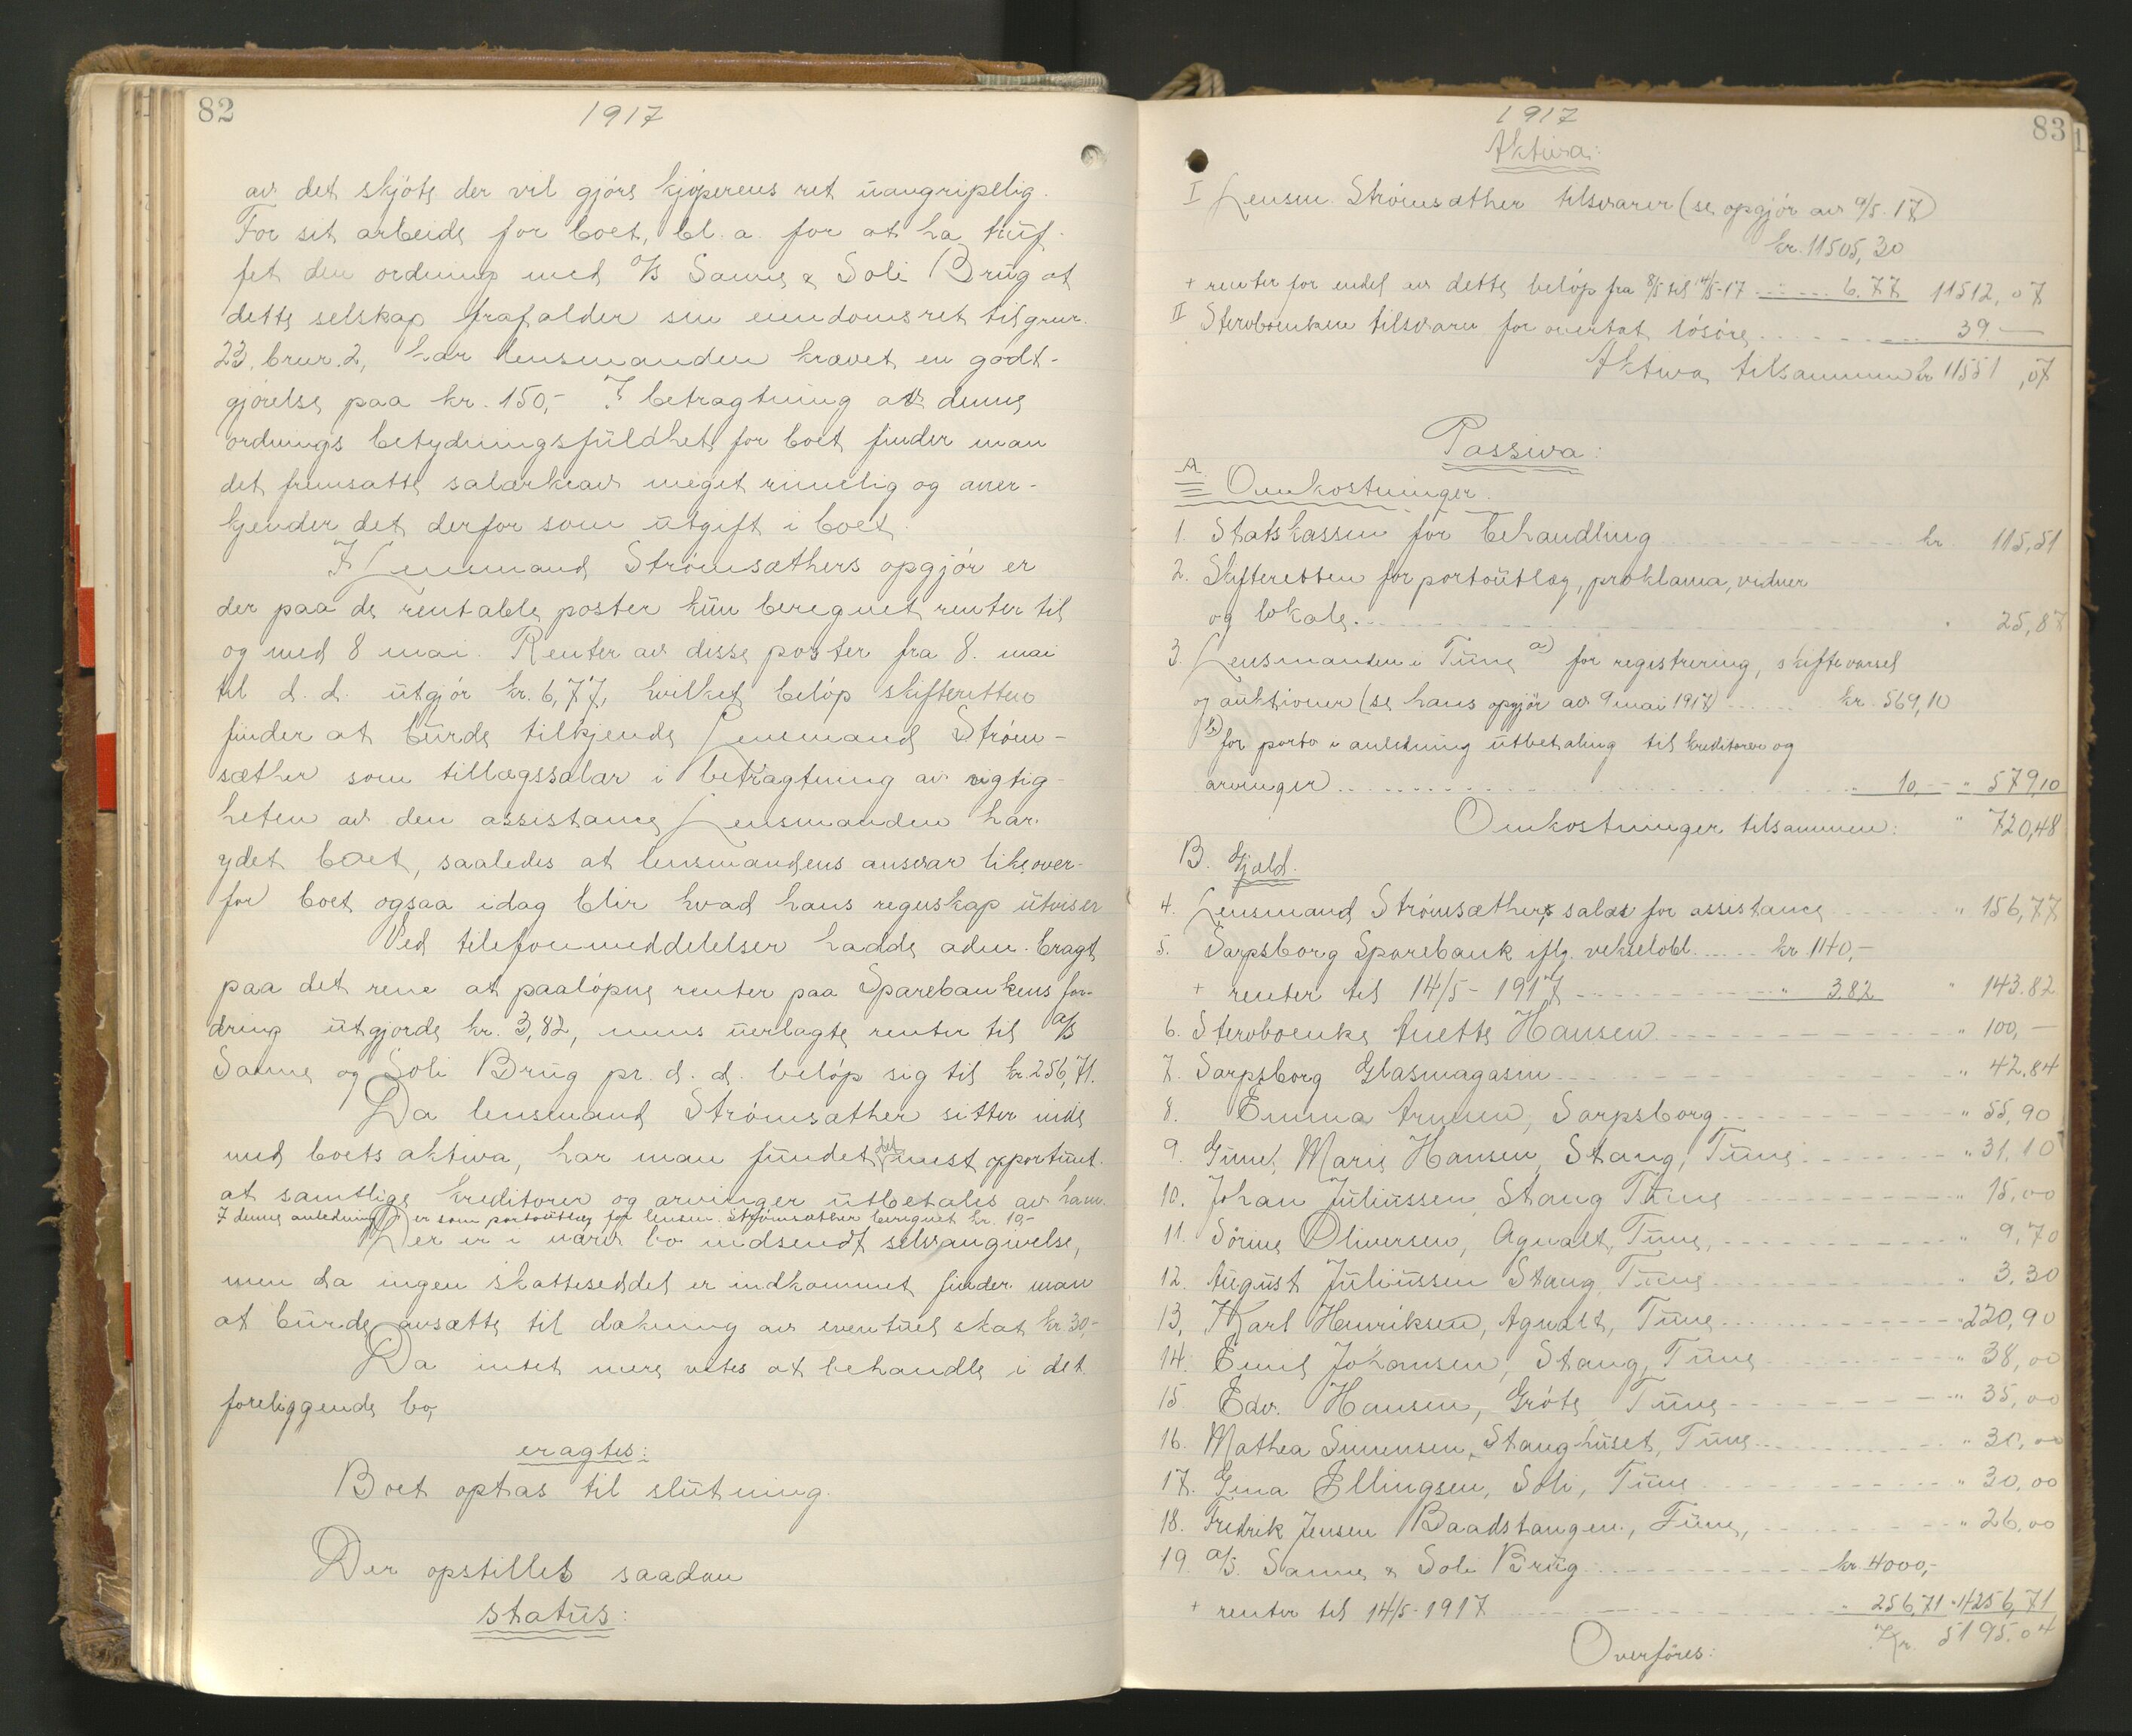 82
1917
av det skjøte der vil gjøre kjøperens ret uangripelig.
For sit arbeide for boet, bl. a. for at ha truf-
fet den ordning med A/S Sanne & Soli Brug at
dette selskap frafalder sin eiendomsret til gnr.
23, brnr. 2, har lensmanden krævet en godt-
gjørelse paa kr. 150,- I betragtning av denne
ordnings betydningsfuldhet for boet finder man
det fremsatte salærkrav meget rimelig og aner-
kjender det derfor som utgift i boet.
I Lensmand Strømsæthers opgjør er
der paa de rentable poster kun beregnet renter til
og med 8 mai. Renter av disse poster fra 8. mai
til d. d. utgjør kr. 6,77, hvilket beløp skifteretten
finder at burde tilkjende Lensmand Strøm-
sæther som tillægssalær i betragtning av vigtig-
heten av den assistance Lensmanden har
ydet boet, saaledes at lensmandens ansvar likeover-
for boet ogsaa idag blir hvad hans regnskap utviser
Ved telefonmeddelelser hadde adm. bragt
paa det rene at paaløpne renter paa Sparebankens for-
dring utgjorde kr. 3,82, mens uerlagte renter til A/S
Sanne og Soli Brug pr. d. d. beløp sig til kr. 256,71.
Da lensmand Strømsæther sitter inde
med boets aktiva, har man fundet det mest opportunt
at samtlige kreditorer og arvinger utbetales av ham.
I denne anledning er som portoutlæg for lensm. Strømsæther beregnet kr. 10,-
Der er i nærv. bo indsendt selvangivelse,
men da ingen skatteseddel er indkommet finder man
at burde avsætte til dækning av eventuel skat kr. 30,-
Da intet mere vites at behandle i det
foreliggende bo,
eragtes:
Boet optas til slutning.
Der opstilles saadan
status:
83
1917
Aktiva:
I Lensm. Strømsæther tilsvarer (se opgjør av 9/5. 17)
kr. 11505,30
+ renter for endel av dette beløp fra 8/5 til 14/5-17 6.77 11512,07
II Stervboenken tilsvarer for overtat løsøre 39.-
Aktiva tilsammen kr 11551,07
Passiva:
A
Omkostninger.
1. Statskassen for behandling kr 115,51
2. Skifteretten for portoutlæg, proklama, vidner
og lokale. " 25,87
3. Lensmanden i Tune a) for registrering, skiftevarsel
og auktioner (se hans opgjør av 9 mai 1917) kr. 569,10
b) for porto i anledning utbetaling til kreditorer og
arvinger " 10,- " 579,10
Omkostninger tilsammen: " 720,48
B. Gjæld.
4. Lensmand Strømsæthers salær for assistance " 156,77
5. Sarpsborg Sparebank iflg. vekselobl. kr. 140,-
+ renter til 14/5-1917 " 3.82 " 143.82
6. Stervboenke Anette Hansen " 100,-
7. Sarpsborg Glasmagasin " 42.84
8. Emma Arnesen, Sarpsborg " 55,90
9. Maris Hansen, Stang, Tune " 31,10
10. Johan Juliussen, Stang Tune " 15,00
11. Sørine Oliversen, Agnalt, Tune, " 9,70
12. August Juliussen Stang, Tune " 3,30
13, Karl Henriksen, Agnalt, Tune " 220,90
14. Emil Johansen, Stang, Tune " 38,00
15 Edv. Hansen, Grøte, Tune " 35,00
16. Mathea Simensen, Stanghuset, Tune " 30,00
17. Gina Ellingsen, Soli, Tune " 30,00
18. Fredrik Jensen Baadstangen, Tune, " 26,00
19 A/S. Sanne & Soli Brug kr. 4000,-
+ renter til 14/5-1917 " 256,71 " 4256,71
Overføres: Kr. 5195.04